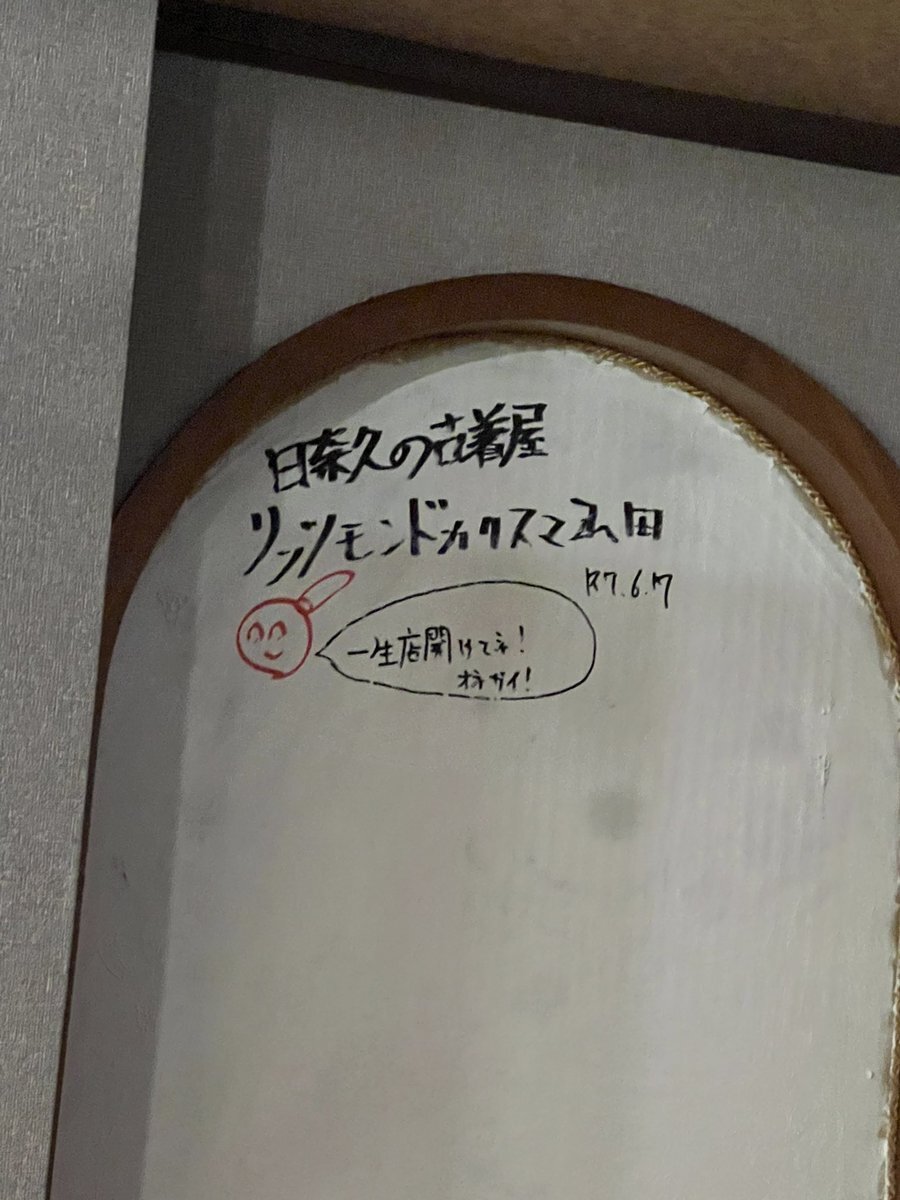 日奈久の古着屋
リッツモンドカクスマ山田
R7.6.17
一生店開けてネ!
オネガイ!